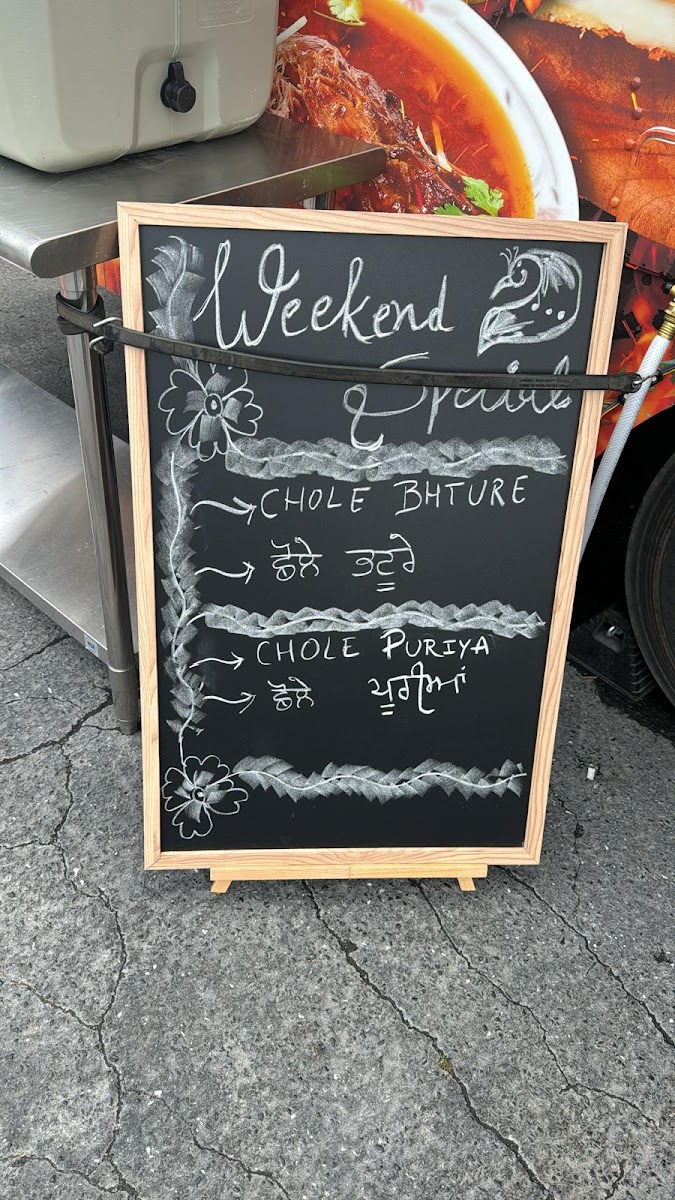 Weekend
Special
CHOLE BHTURE
ਛੋਲੇ ਭਟੂਰੇ
CHOLE PURIYA
ਛੋਲੇ ਪੂਰੀਆਂ